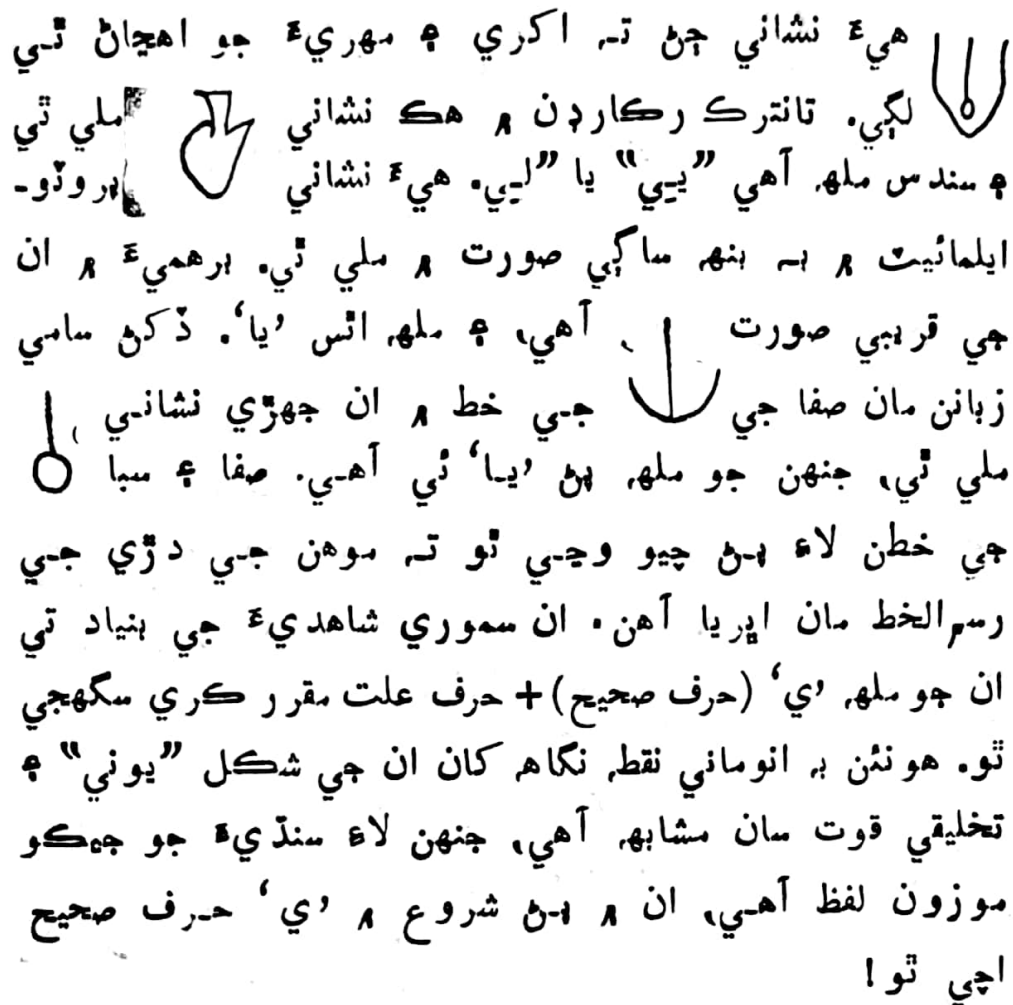 هيءَ نشاني ڄڻ تہ اکري ۽ مهريءَ جو اهڃاڻ ٿي
لڳي. تانترڪ رڪارڊن ۾ هڪ نشاني ملي ٿي
۽ سندس ملهہ آهي ”يـِي“ يا ”لـِي. هيءَ نشاني پروٽو-
ايلمائيٽ ۾ بہ بنهہ ساڳي صورت ۾ ملي ٿي. برهميءَ ۾ ان
جي قريبي صورت آهي، ۽ ملهہ اٿس ’يا‘. ڏکڻ سامي
زبانن مان صفا جي جي خط ۾ ان جهڙي نشاني
ملي ٿي، جنهن جو ملهہ پڻ ’يا‘ ئي آهي. صفا ۽ سبا
جي خطن لاءِ پڻ چيو وڃي ٿو تہ موهن جي دڙي جي
رسم الخط مان اڀريا آهن. ان سموري شاهديءَ جي بنياد تي
ان جو ملهہ ’ي‘ (حرف صحيح) + حرف علت مقرر ڪري سگهجي
ٿو. هونئن بہ انوماني نقطہ نگاہ کان ان جي شڪل ”يوني“ ۽
تخليقي قوت سان مشابهہ آهي، جنهن لاءِ سنڌيءَ جو جيڪو
موزون لفظ آهي، ان ۾ پڻ شروع ۾ ’ي‘ حرف صحيح
اچي ٿو!